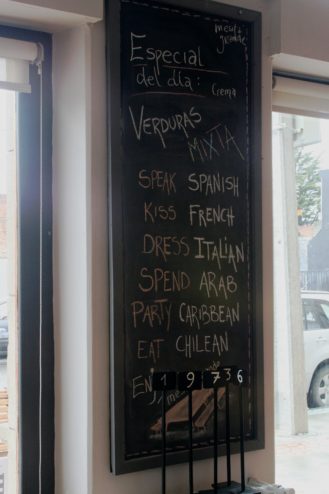 Especial
del día:
Crema
VERDURAS
MIXTA
SPEAK SPANISH
KISS FRENCH
DRESS ITALIAN
SPEND ARAB
PARTY CARIBBEAN
EAT CHILEAN
1 9 7 3 6